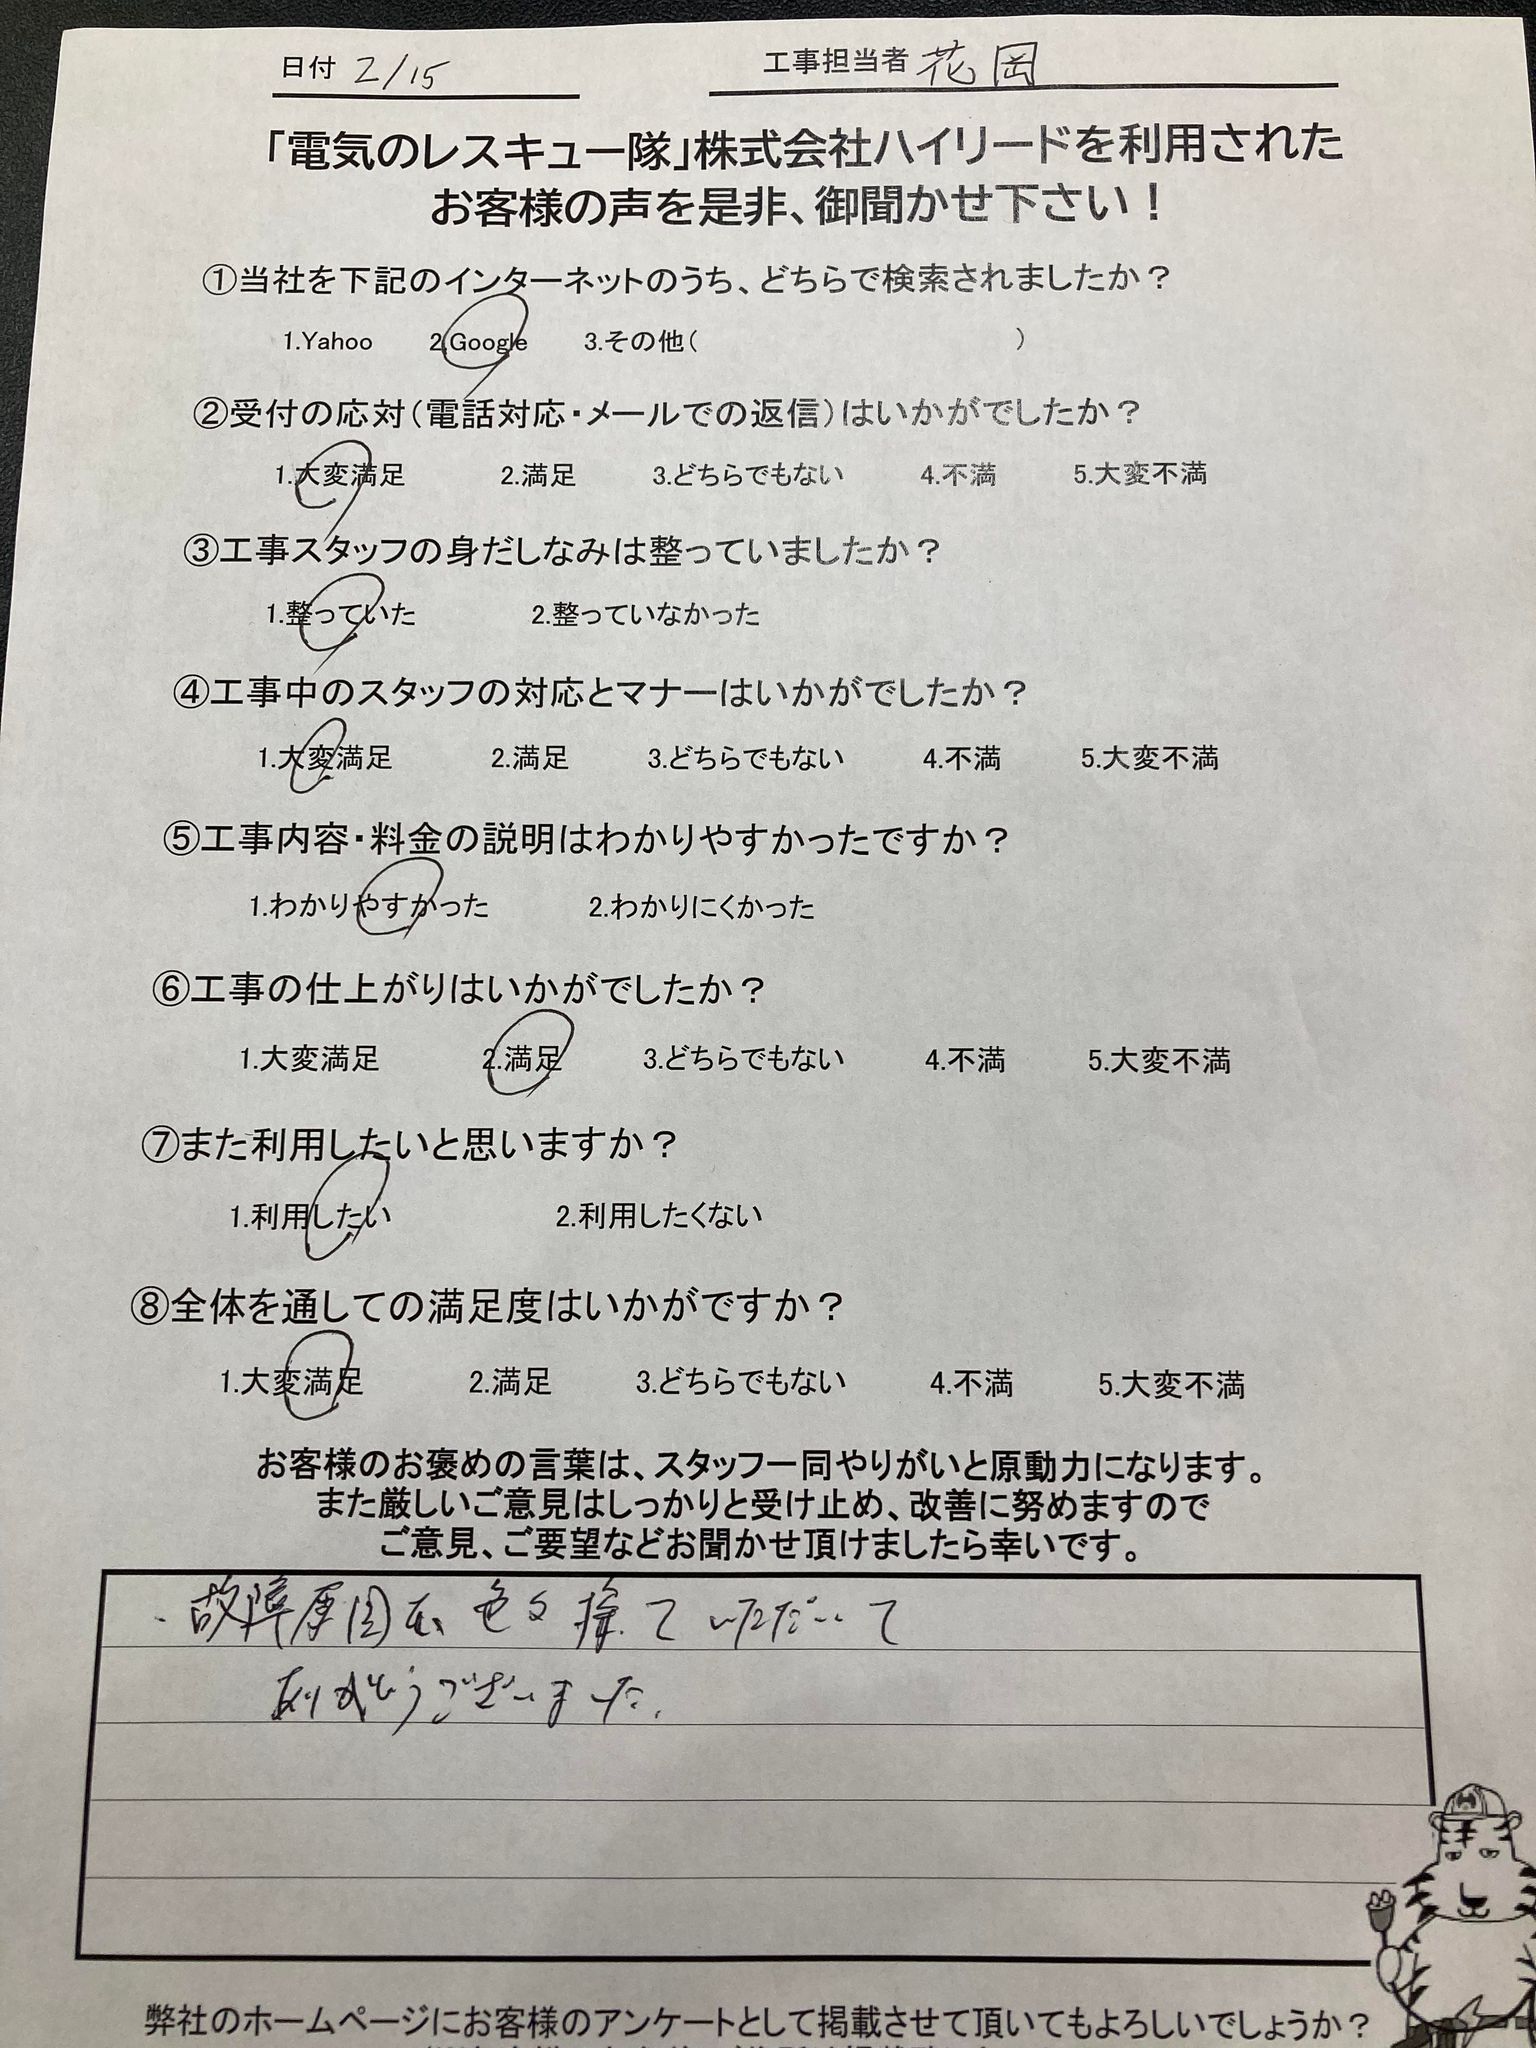 日付 2/15 工事担当者 花岡
「電気のレスキュー隊」株式会社ハイリードを利用された
お客様の声を是非、御聞かせ下さい！
①当社を下記のインターネットのうち、どちらで検索されましたか？
1.Yahoo 2.Google 3.その他( )
②受付の応対(電話対応・メールでの返信)はいかがでしたか？
1.大変満足 2.満足 3.どちらでもない 4.不満 5.大変不満
③工事スタッフの身だしなみは整っていましたか？
1.整っていた 2.整っていなかった
④工事中のスタッフの対応とマナーはいかがでしたか？
1.大変満足 2.満足 3.どちらでもない 4.不満 5.大変不満
⑤工事内容・料金の説明はわかりやすかったですか？
1.わかりやすかった 2.わかりにくかった
⑥工事の仕上がりはいかがでしたか？
1.大変満足 2.満足 3.どちらでもない 4.不満 5.大変不満
⑦また利用したいと思いますか？
1.利用したい 2.利用したくない
⑧全体を通しての満足度はいかがですか？
1.大変満足 2.満足 3.どちらでもない 4.不満 5.大変不満
お客様のお褒めの言葉は、スタッフ一同やりがいと原動力になります。
また厳しいご意見はしっかりと受け止め、改善に努めますので
ご意見、ご要望などお聞かせ頂けましたら幸いです。
・故障原因を色々探していただいて
ありがとうございました。
弊社のホームページにお客様のアンケートとして掲載させて頂いてもよろしいでしょうか？